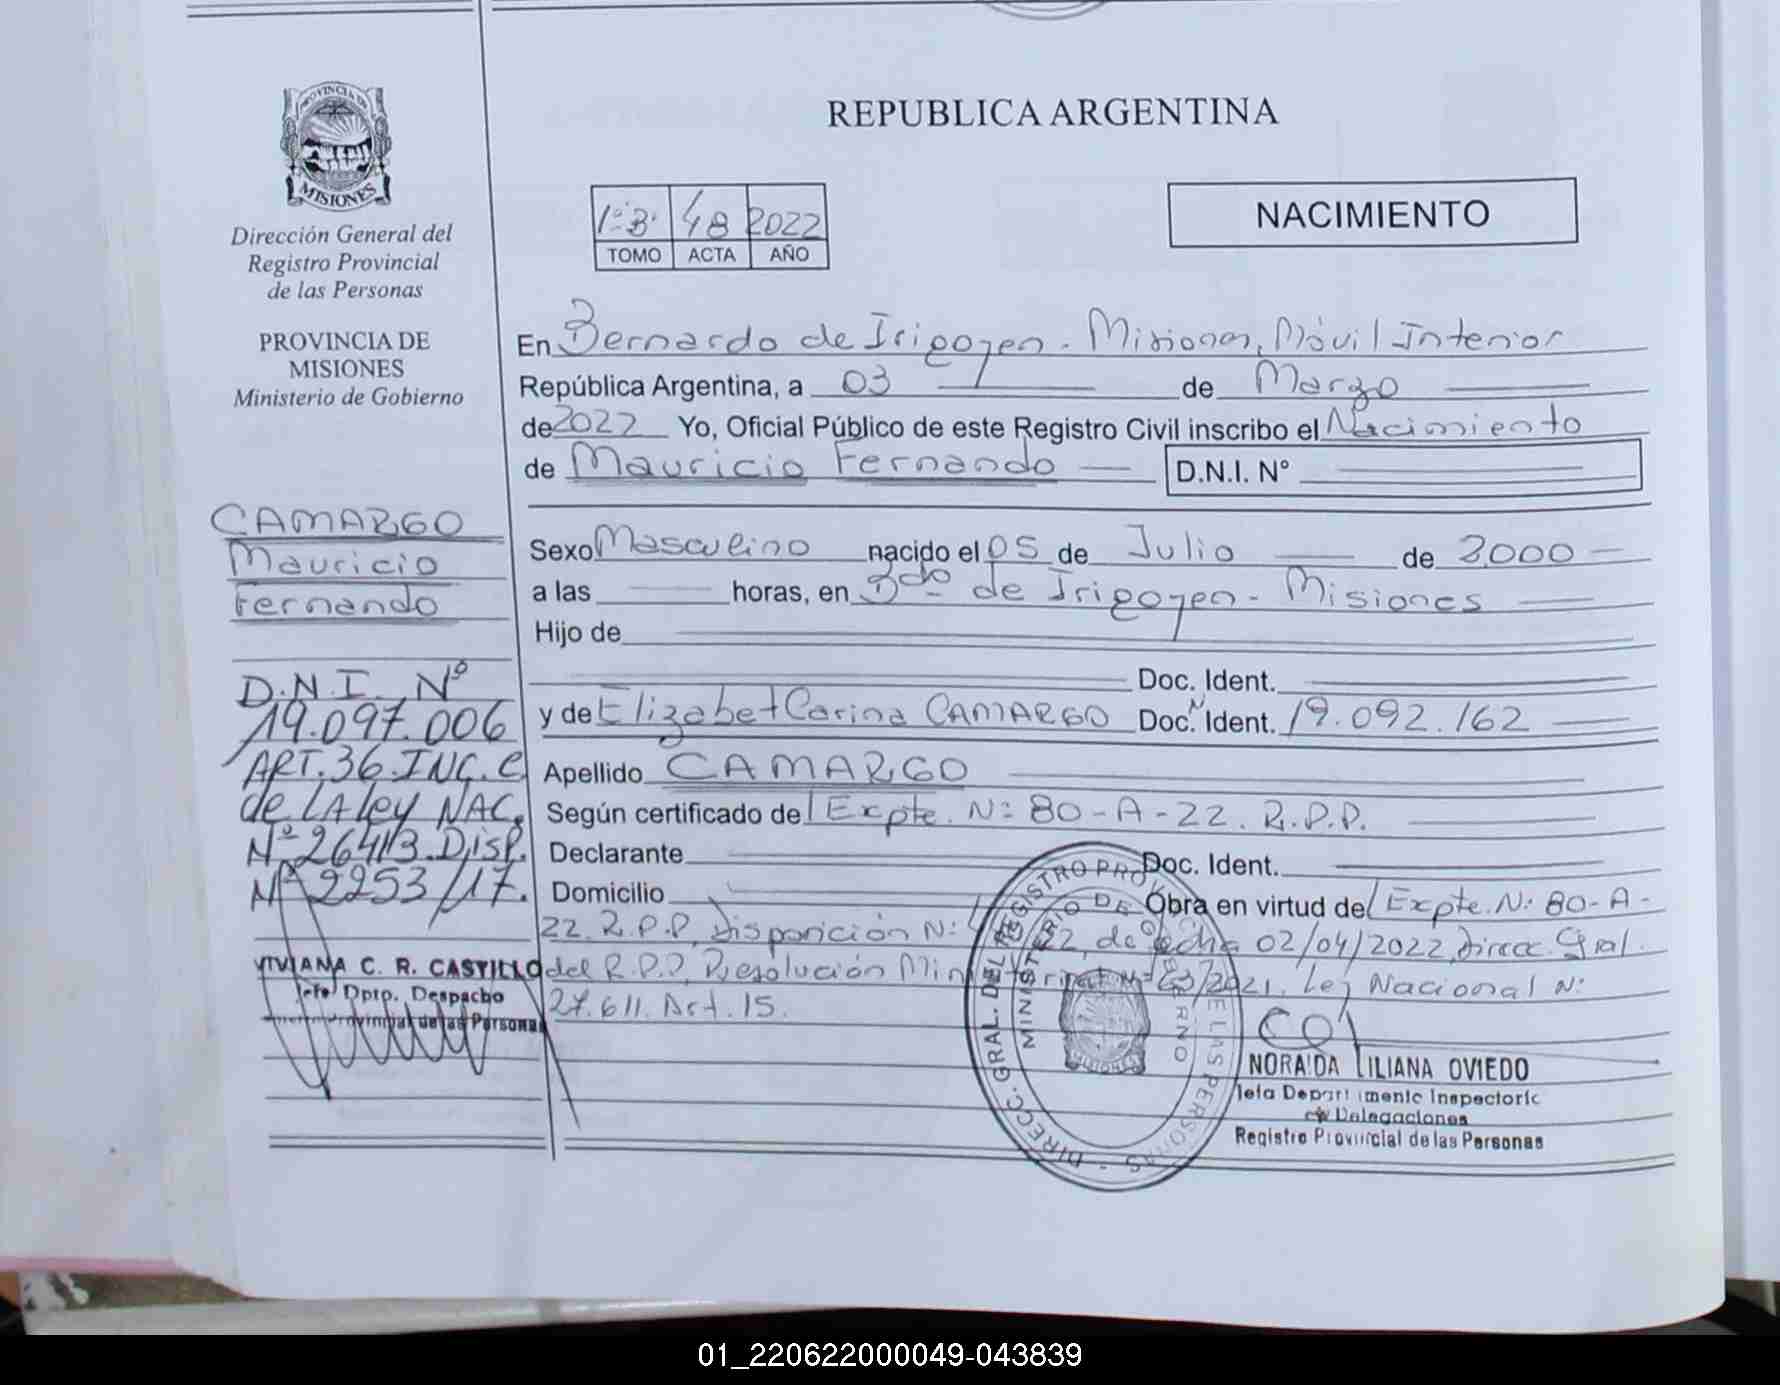 PROVINCIA DE
MISIONES
Dirección General del
Registro Provincial
de las Personas
PROVINCIA DE
MISIONES
Ministerio de Gobierno
CAMARGO
Mauricio
Fernando
D.N.I. Nº
19.097.006
ART.36.INC.e
de LA ley NAC.
Nº 26413.Disp.
Nº 2253/17.
VIVIANA C. R. CASTILLO
Jefe Dpto. Despacho
Provincial de las Personas
REPUBLICA ARGENTINA
1º"B" 48 2022
TOMO ACTA AÑO
NACIMIENTO
En Bernardo de Irigoyen - Misiones, Móvil Interior
República Argentina, a 03 de Marzo
de 2022 Yo, Oficial Público de este Registro Civil inscribo el Nacimiento
de Mauricio Fernando D.N.I. N°
Sexo Masculino nacido el 05 de Julio de 2.000
a las horas, en Bdo de Irigoyen - Misiones
Hijo de
Doc. Ident.
y de Elizabet Carina CAMARGO Doc. Ident. N 19.092.162
Apellido CAMARGO
Según certificado del Expte. Nº 80-A-22. R.P.P.
Declarante Doc. Ident.
Domicilio Obra en virtud del Expte. Nº 80-A-
22. R.P.P. Disposición Nº 22, de fecha 02/04/2022, Direcc. Gral.
del R.P.P. Resolución Ministerial Nº /2021, Ley Nacional Nº
27.611. Art. 15.
DIRECC. GRAL. DEL REGISTRO PROV. DE LAS PERSONAS
MINISTERIO DE GOBIERNO
MISIONES
NORAIDA LILIANA OVIEDO
Jefa Departamento Inspectoría
de Delegaciones
Registro Provincial de las Personas
01_220622000049-043839